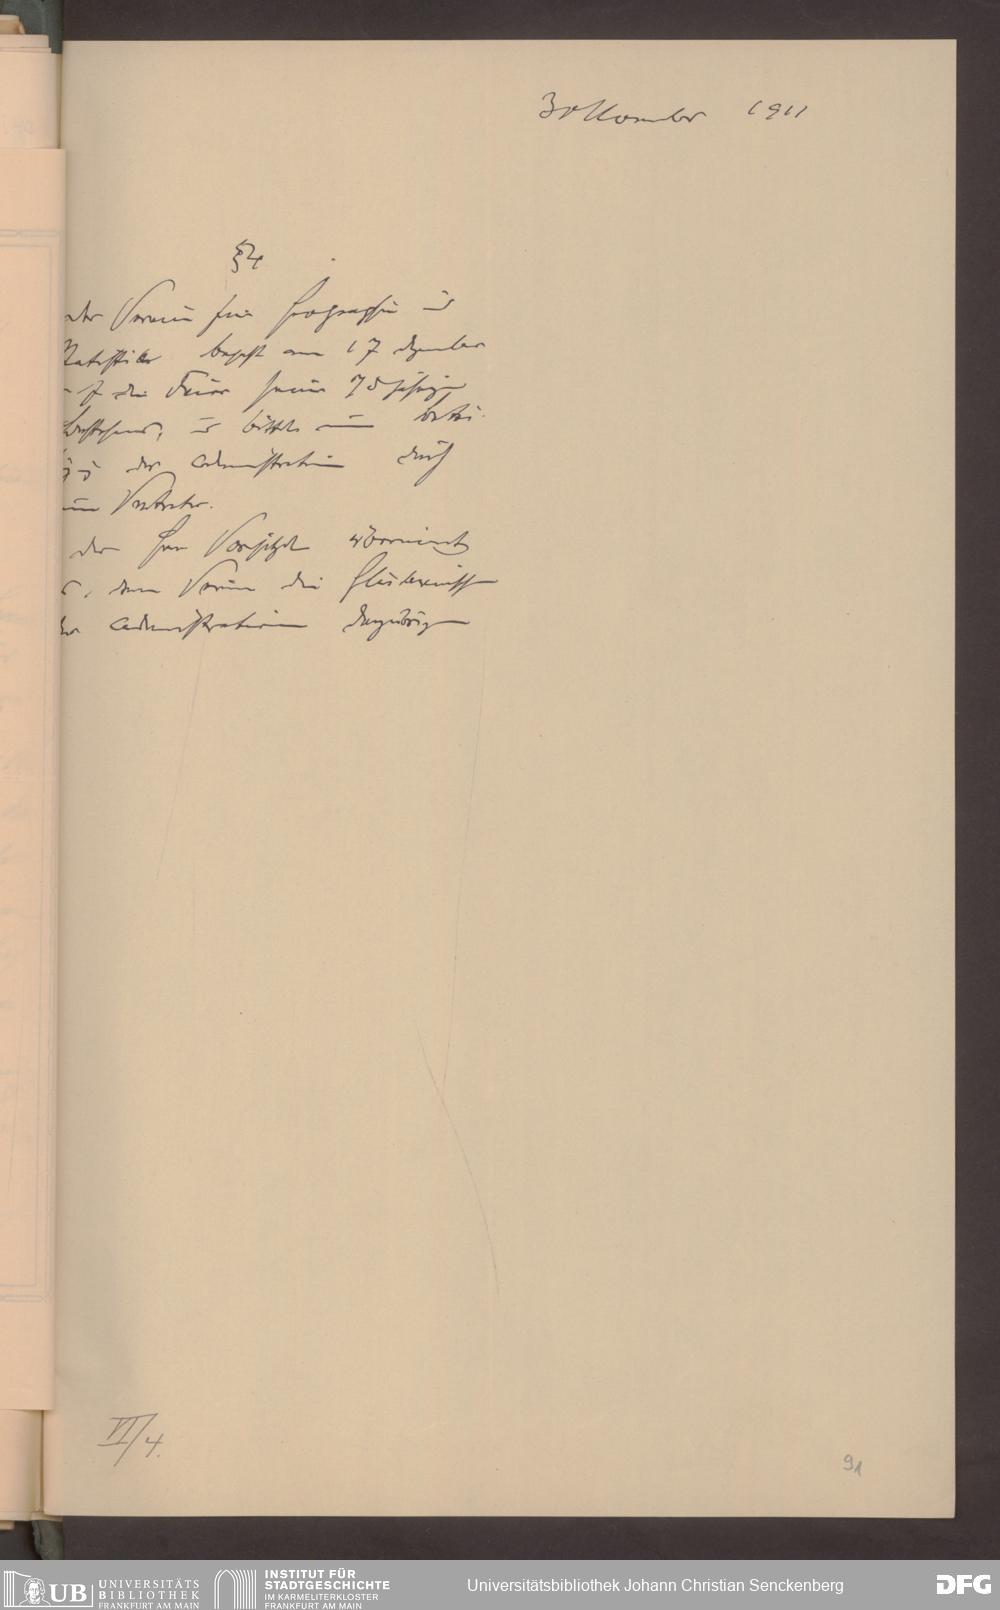 30 November 1911
§ 4
der Verein für Geographie und
Statistik begeht am 17 Dezember
die Feier seines 75 jährigen
Bestehens, und bittet um Betei-
der Administration durch
einen Vertreter.
der Herr Vorsitzende übernimmt
es, dem Verein die Glückwünsche
der Administration darzubringen
VI/4.
91
UB UNIVERSITÄTS
BIBLIOTHEK
FRANKFURT AM MAIN
INSTITUT FÜR
STADTGESCHICHTE
IM KARMELITERKLOSTER
FRANKFURT AM MAIN
Universitätsbibliothek Johann Christian Senckenberg
DFG